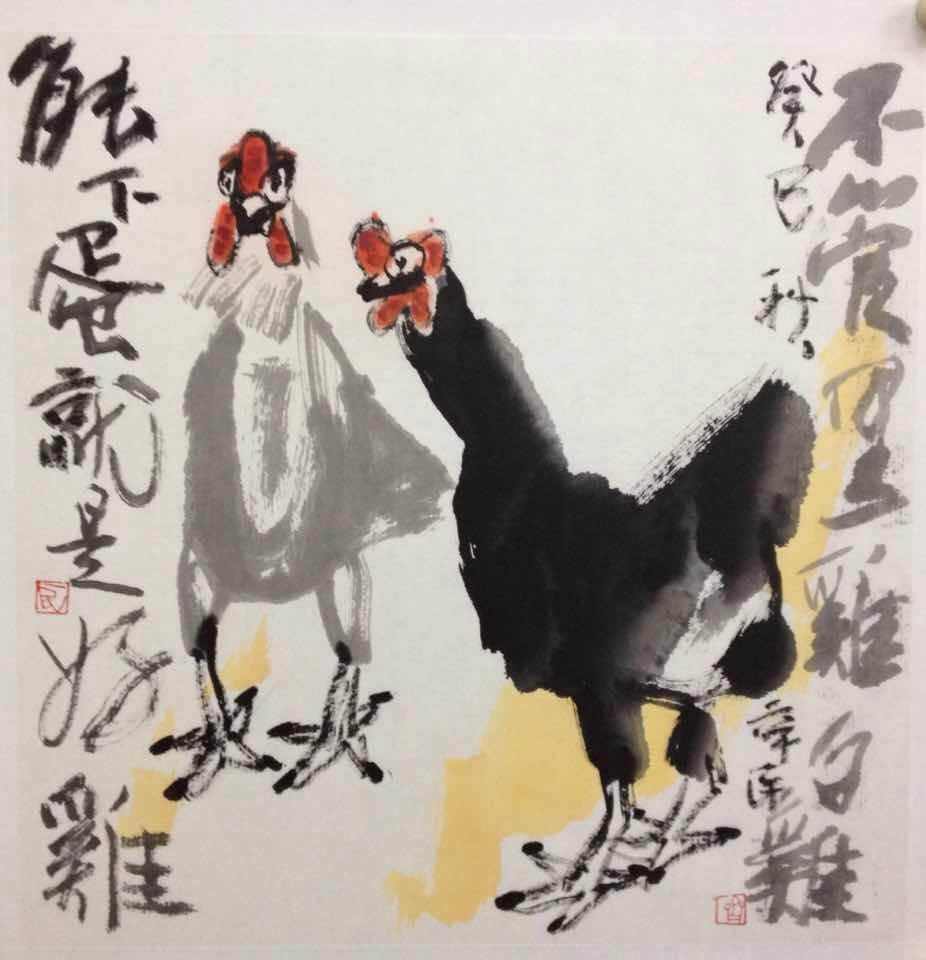 不管黑雞白雞
癸巳秋
能下蛋就是好雞